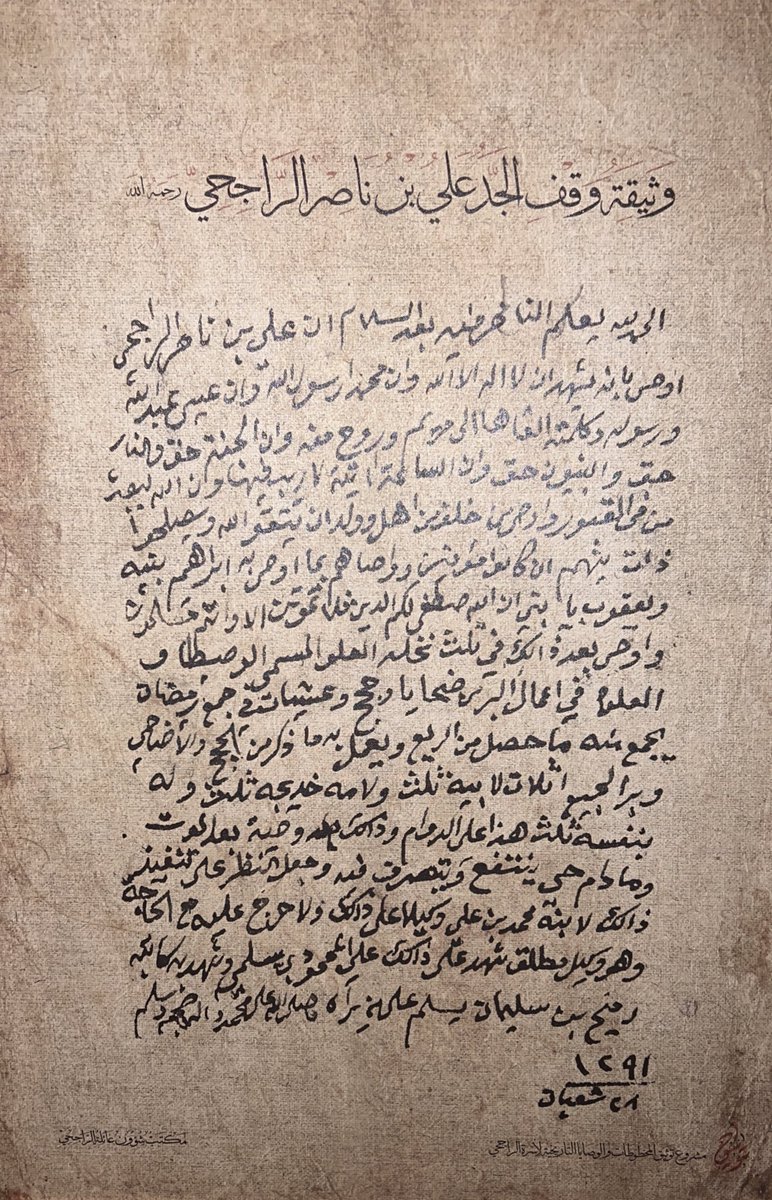 وثيقة وقف الجد علي بن ناصر الراجحي رحمه الله
الحمدلله يعلم الناظر اليه بعد السلام ان علي بن ناصر الراجحي
اوصى بانه يشهد ان لا اله الا الله وان محمدا رسول الله وان عيسى عبد الله
ورسوله وكلمته القاها الى مريم وروح منه وان الجنة حق والنار
حق والنبيون حق وان الساعة اتية لا ريب فيها وان الله يبعث
من في القبور واوصى من خلفه من اهل وولد ان يتقو الله ويصلحوا
ذات بينهم ان كانوا مؤمنين وواصاهم بما اوصى به ابراهيم بنيه
ويعقوب يا بني ان الله صطفى لكم الدين فلا تموتن الا وانتم مسلمون
واوصى بعد ذالك في ثلث نخله العلو المسمى الوصيطا و
العلوة في اعمال البر ضحايا وحجج وعشيات في جمع رمضان
يجمع منه ما حصل من الريع ويعمل به ما ذكر من الحجج والأضاحي
وبر الجميع اثلاث لابيه ثلث ولامه خديجه ثلث وله
بنفسه ثلث هذا على الدوام وذالك وصية بعد لموت
وما دام حي ينتفع ويتصرف فيه وجعل النظر على تنفيذ
ذالك لابنه محمد بن علي وكيلا على ذالك ولا حرج عليه مع الحاجة
وهو وكيل مطلق شهد على ذالك علي المحمود بن سلمي وشهد به كاتبه
رميح بن سليمان يسلم على من يراه وصلى الله على محمد واله وصحبه وسلم
١٢٩١
٢٨ شعبان
مكتب شؤون عائلة الراجحي
مشروع توثيق المخطوطات والوصايا التاريخية لأسرة الراجحي